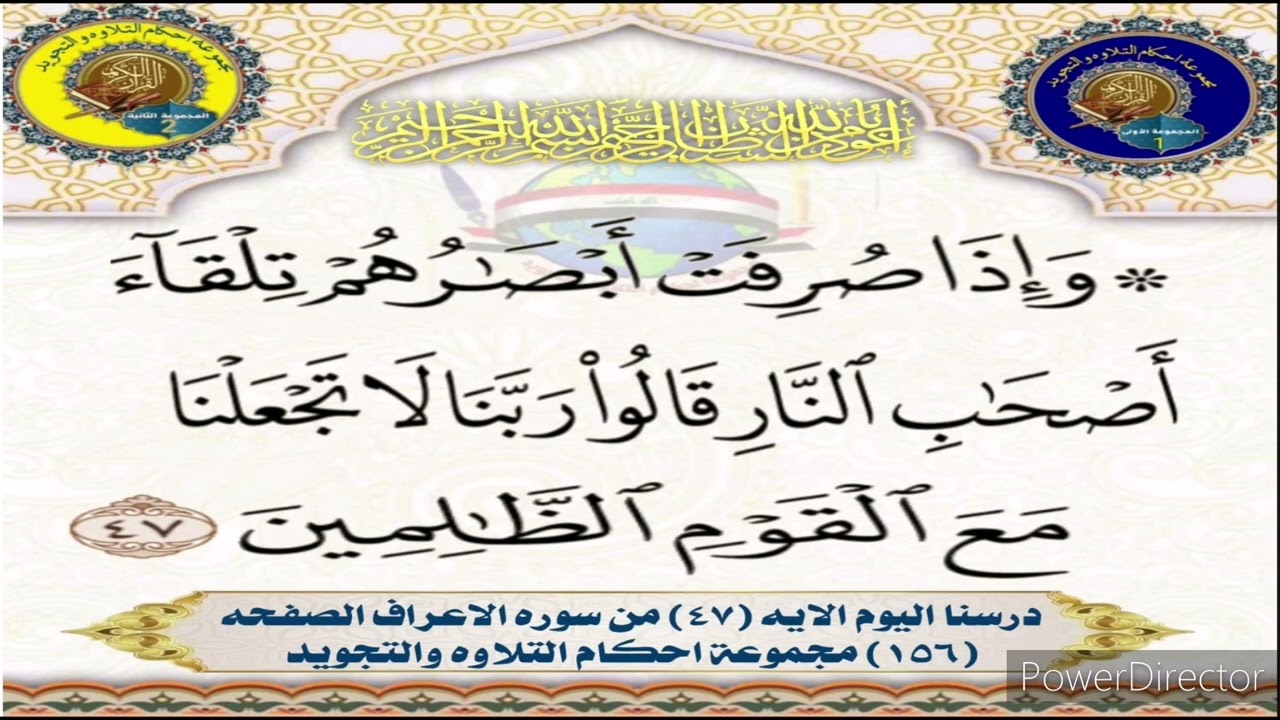 مجموعة احكام التلاوه والتجويد
القرآن الكريم
المجموعة الأولى
1
مجموعة احكام التلاوه والتجويد
القرآن الكريم
المجموعة الثانية
2
أعوذ بالله من الشيطان الرجيم بسم الله الرحمن الرحيم
* وَإِذَا صُرِفَتۡ أَبۡصَٰرُهُمۡ تِلۡقَآءَ
أَصۡحَٰبِ ٱلنَّارِ قَالُواْ رَبَّنَا لَا تَجۡعَلۡنَا
مَعَ ٱلۡقَوۡمِ ٱلظَّٰلِمِينَ ٤٧
درسنا اليوم الايه (٤٧) من سوره الاعراف الصفحه
(١٥٦) مجموعة احكام التلاوه والتجويد
PowerDirector